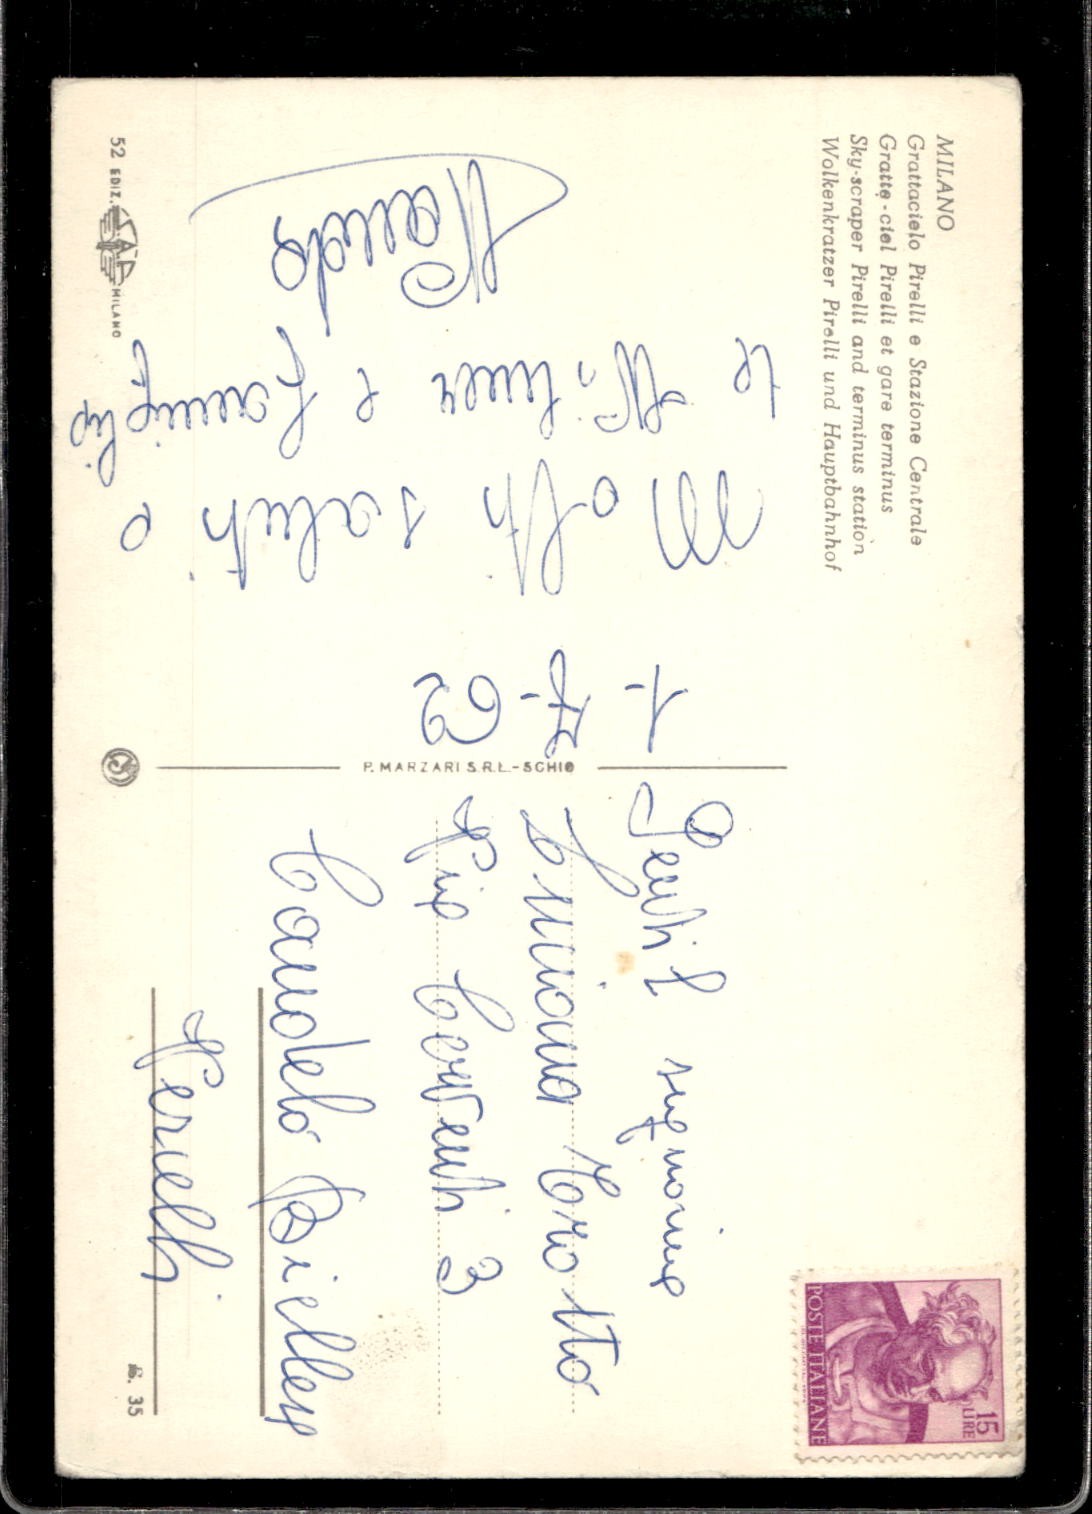 MILANO
Grattacielo Pirelli e Stazione Centrale
Gratte-ciel Pirelli et gare terminus
Sky-scraper Pirelli and terminus station
Wolkenkratzer Pirelli und Hauptbahnhof
1-7-62
Molti saluti a
te e famiglia
52 EDIZ. SAF MILANO
P. MARZARI S.R.L.-SCHIO
Gentil signorina
Luciana
Via Cerventi 3
Candelo Biellese
Vercelli
15
LIRE
POSTE ITALIANE
35